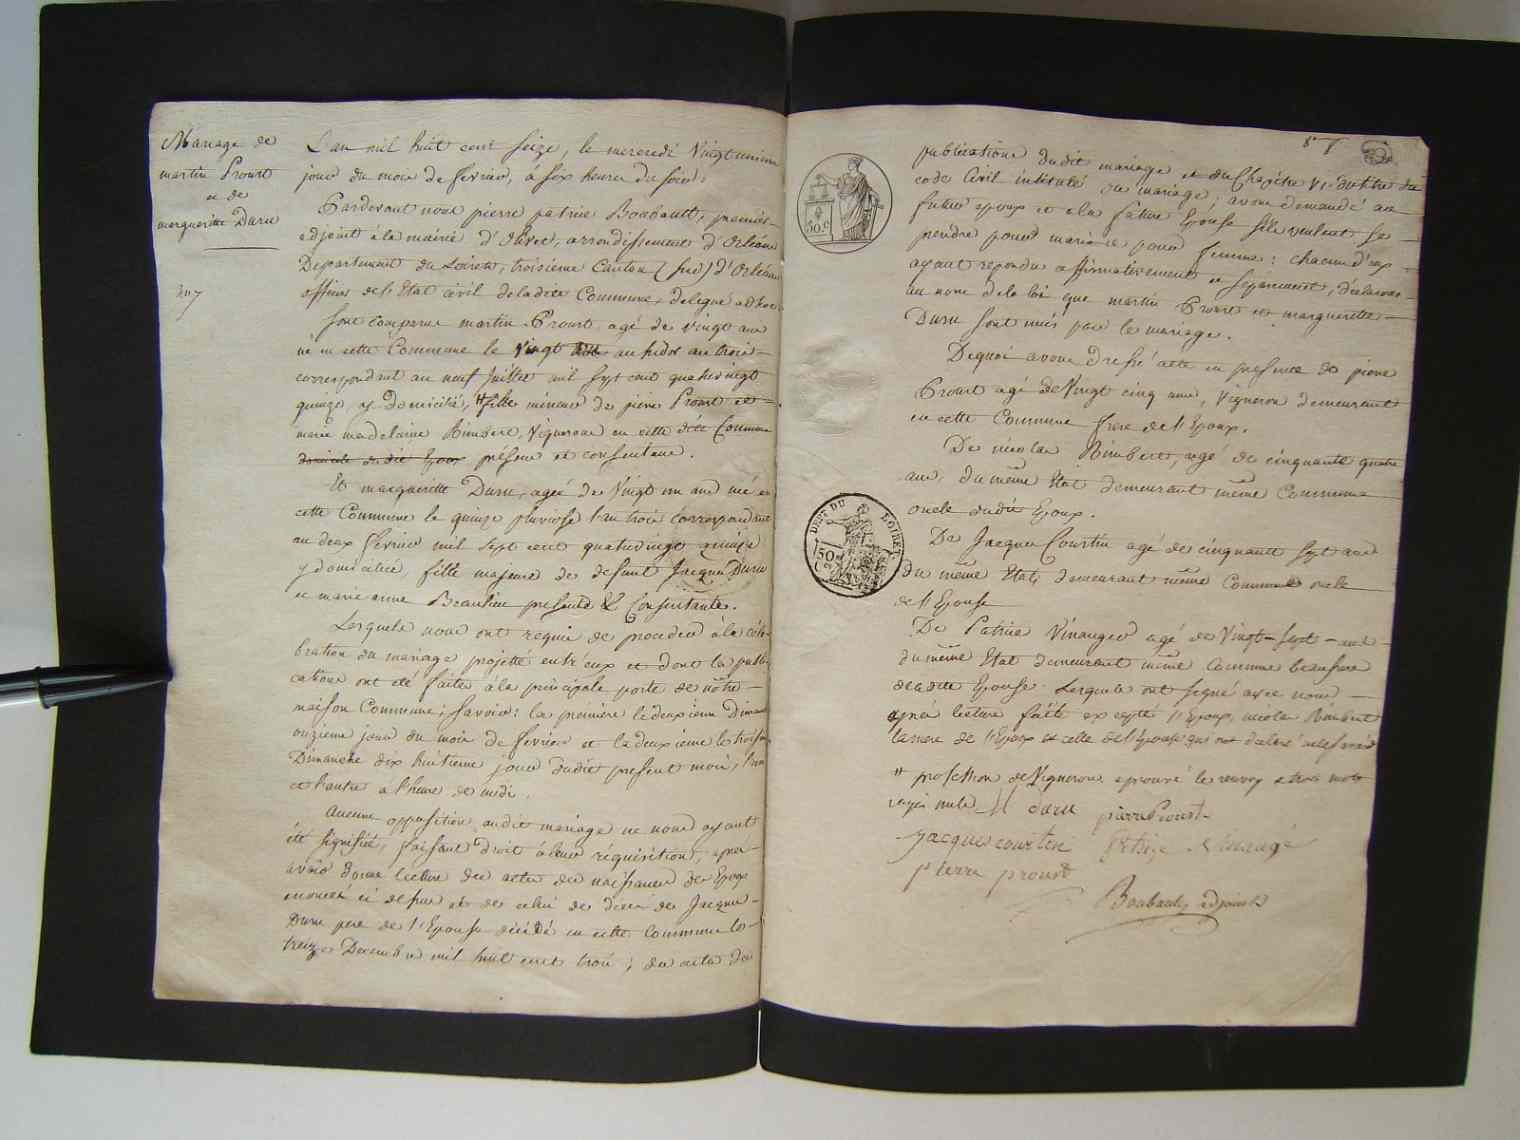 Mariage de
martin Proust
et de
margueritte Daru
L'an mil huit cent seize, le mercredi Vingt unieme
jour du mois de fevrier, à six heures du soir.
Pardevant nous pierre patrice Boubault, premier
adjoint à la mairie d'Olivet, arrondissement d'Orléans
Departement du Loiret, troisieme Canton (sud) d'Orléans
officier de l'Etat civil de ladite Commune, delegué ad hoc
sont comparus martin Proust agé de vingt ans
né en cette Commune le Vingt un messidor an trois
correspondant au neuf Juillet mil sept cent quatrevingt
quinze y domicilié, # fils mineur de pierre Proust et
marie madelaine Rimbert, Vignerons en cette dite Commune
domicile dudit Epoux présens et consentans.
Et marguerite Daru, agée de Vingt un ans née en
cette Commune le quinze pluviose l'an trois correspondant
au deux fevrier mil sept cent quatrevingt quinze
y domiciliée, fille majeure de defunt Jacques Daru
et marie anne Beaulieu presente & Consentante.
Lesquels nous ont requis de proceder à la célé-
bration du mariage projetté entr'eux et dont les publi-
cations ont été faites à la principale porte de notre
maison Commune; savoir: la premiere le deuxieme Dimanche
onzieme jour du mois de fevrier et la deuxieme le troisieme
Dimanche dix huitieme jour dudit present mois, l'une
et l'autre a l'heure de midi.
Aucune opposition audit mariage ne nous ayant
été signifiée, faisant droit à leur réquisition, apres
avoir donné lecture des actes de naissances des Epoux
enoncés ci dessus et de celui de décès de Jacques
Daru pere de l'Epouse décédé en cette Commune le
treize Decembre mil huit cent trois; des actes de
57
50 c
publications dudit mariage et du Chapitre VI du titre du
code Civil intitulé du mariage; avons demandé au
futur epoux et a la future Epouse s'ils veulent se
prendre pour mari et pour femme: chacun d'eux
ayant repondu affirmativement et separement, declarons
au nom de la loi que martin Proust et marguerite
Daru sont unis par le mariage.
De quoi avons dressé acte en presence de pierre
Proust agé de Vingt cinq ans, Vigneron demeurant
en cette Commune frere de l'Epoux.
De nicolas Rimbert, agé de cinquante quatre
ans, du même Etat demeurant même Commune
oncle dudit Epoux.
DEPT DU LOIRET
50 C
De Jacques Courtin agé de cinquante sept ans
du même Etat, demeurant même Commune oncle
de l'Epouse
De Patrice Vinauger agé de Vingt-sept ans
du même Etat demeurant même Commune beaufrere
de ladite Epouse. Lesquels ont signé avec nous
après lecture faite excepté l'Epoux, nicolas Rimbert
la mere de l'Epoux et celle de l'Epouse qui ont declaré ne le savoir
# profession de Vigneron. aprouvé le renvoy et trois mots
rayés nuls
M daru
pierre Proust
Jacques courtin
pierre proust
Boubault adjoint